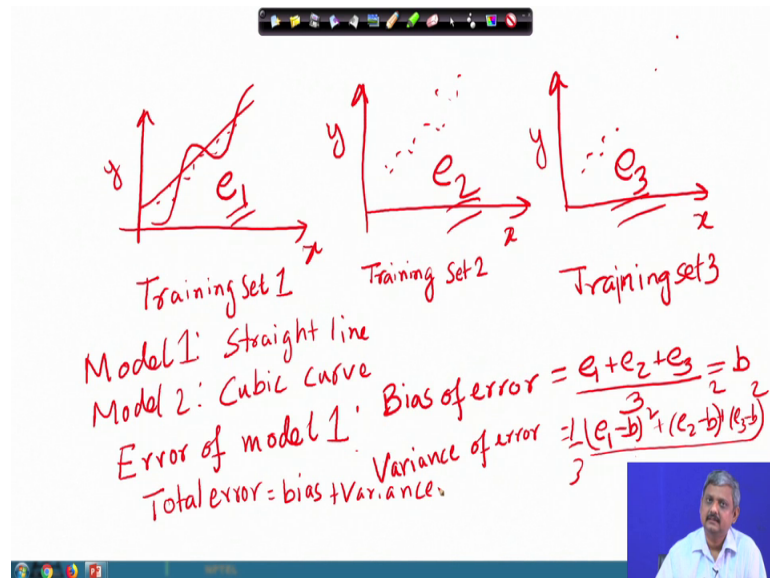 y e₁ x
y e₂ x
y e₃ x
Training Set 1
Training Set 2
Training set 3
Model 1: Straight line
Model 2: Cubic Curve
Error of model 1: Bias of error = (e₁+e₂+e₃)/3 = b
Variance of error = 1/3 (e₁-b)²+(e₂-b)²+(e₃-b)²
Total error = bias + Variance.
NPTEL